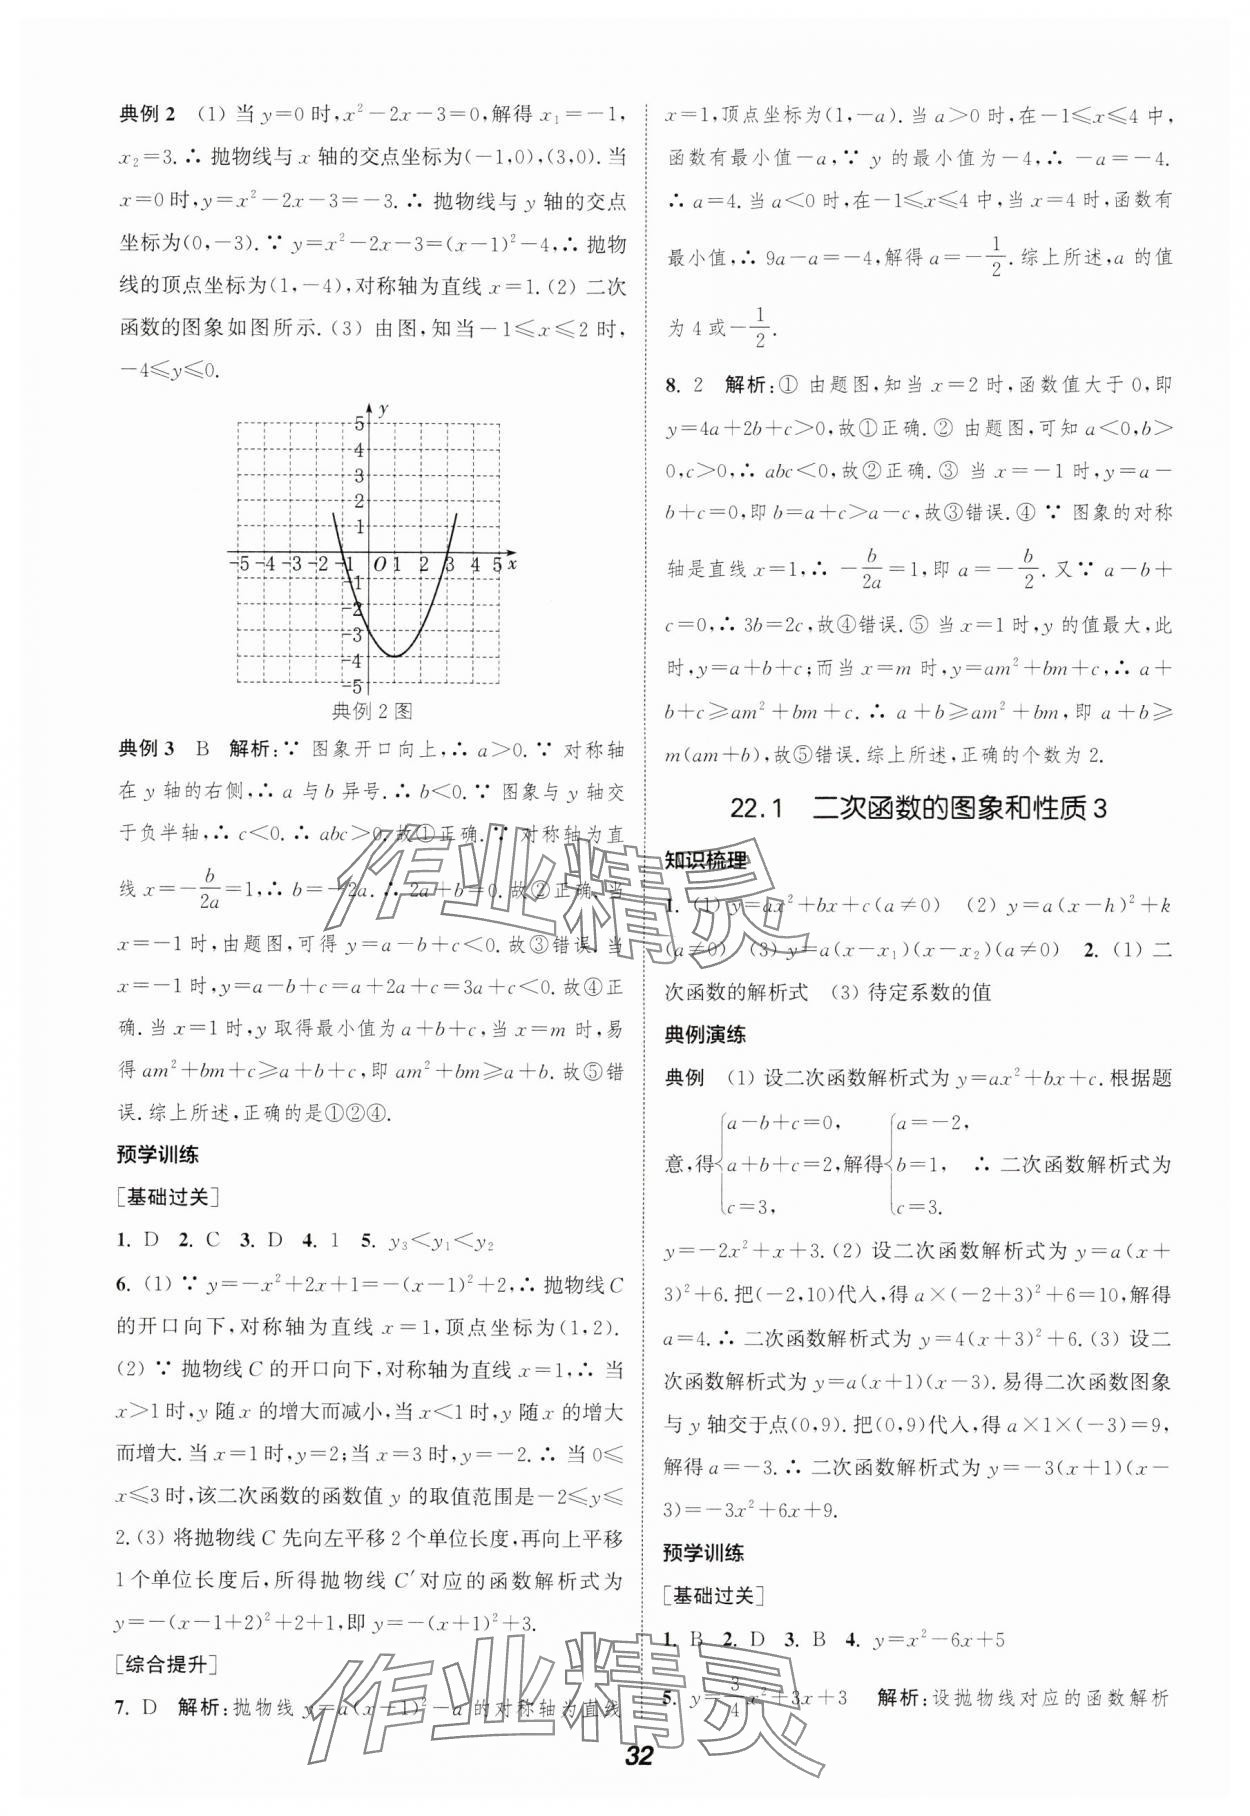 典例2　(1) 当 y=0 时,x²-2x-3=0,解得 x₁=-1,
x₂=3.∴ 抛物线与 x 轴的交点坐标为(-1,0),(3,0).当
x=0 时,y=x²-2x-3=-3.∴ 抛物线与 y 轴的交点
坐标为(0,-3).∵ y=x²-2x-3=(x-1)²-4,∴ 抛物
线的顶点坐标为(1,-4),对称轴为直线 x=1.(2) 二次
函数的图象如图所示.(3) 由图,知当-1≤x≤2 时,
-4≤y≤0.
y
5
4
3
2
1
-5 -4 -3 -2 -1 O 1 2 3 4 5 x
-1
-2
-3
-4
-5
典例 2 图
典例3　B　解析:∵ 图象开口向上,∴ a>0.∵ 对称轴
在 y 轴的右侧,∴ a 与 b 异号.∴ b<0.∵ 图象与 y 轴交
于负半轴,∴ c<0.∴ abc>0.故①正确.∵ 对称轴为直
线 x=-b/2a=1,∴ b=-2a.∴ 2a+b=0.故②正确.当
x=-1 时,由题图,可得 y=a-b+c<0.故③错误.当
x=-1 时,y=a-b+c=a+2a+c=3a+c<0.故④正
确.当 x=1 时,y 取得最小值为 a+b+c,当 x=m 时,易
得 am²+bm+c≥a+b+c,即 am²+bm≥a+b.故⑤错
误.综上所述,正确的是①②④.
预学训练
[基础过关]
1. D　2. C　3. D　4. 1　5. y₃<y₁<y₂
6. (1) ∵ y=-x²+2x+1=-(x-1)²+2,∴ 抛物线 C
的开口向下,对称轴为直线 x=1,顶点坐标为(1,2).
(2) ∵ 抛物线 C 的开口向下,对称轴为直线 x=1,∴ 当
x>1 时,y 随 x 的增大而减小,当 x<1 时,y 随 x 的增大
而增大.当 x=1 时,y=2;当 x=3 时,y=-2.∴ 当 0≤
x≤3 时,该二次函数的函数值 y 的取值范围是-2≤y≤
2.(3) 将抛物线 C 先向左平移 2 个单位长度,再向上平移
1 个单位长度后,所得抛物线 C′对应的函数解析式为
y=-(x-1+2)²+2+1,即 y=-(x+1)²+3.
[综合提升]
7. D　解析:抛物线 y=a(x-1)²-a 的对称轴为直线
x=1,顶点坐标为(1,-a).当 a>0 时,在-1≤x≤4 中,
函数有最小值-a,∵ y 的最小值为-4,∴ -a=-4.
∴ a=4.当 a<0 时,在-1≤x≤4 中,当 x=4 时,函数有
最小值,∴ 9a-a=-4,解得 a=-1/2.综上所述,a 的值
为 4 或-1/2.
8. 2　解析:① 由题图,知当 x=2 时,函数值大于 0,即
y=4a+2b+c>0,故①正确.② 由题图,可知 a<0,b>
0,c>0,∴ abc<0,故②正确.③ 当 x=-1 时,y=a-
b+c=0,即 b=a+c>a-c,故③错误.④ ∵ 图象的对称
轴是直线 x=1,∴ -b/2a=1,即 a=-b/2.又∵ a-b+
c=0,∴ 3b=2c,故④错误.⑤ 当 x=1 时,y 的值最大,此
时,y=a+b+c;而当 x=m 时,y=am²+bm+c,∴ a+
b+c≥am²+bm+c.∴ a+b≥am²+bm,即 a+b≥
m(am+b),故⑤错误.综上所述,正确的个数为 2.
22.1　二次函数的图象和性质 3
知识梳理
1. (1) y=ax²+bx+c(a≠0)　(2) y=a(x-h)²+k
(a≠0)　(3) y=a(x-x₁)(x-x₂)(a≠0)　2. (1) 二
次函数的解析式　(3) 待定系数的值
典例演练
典例　(1) 设二次函数解析式为 y=ax²+bx+c.根据题
意,得{a-b+c=0, a+b+c=2, c=3, 解得{a=-2, b=1, c=3. ∴ 二次函数解析式为
y=-2x²+x+3.(2) 设二次函数解析式为 y=a(x+
3)²+6.把(-2,10)代入,得 a×(-2+3)²+6=10,解得
a=4.∴ 二次函数解析式为 y=4(x+3)²+6.(3) 设二
次函数解析式为 y=a(x+1)(x-3).易得二次函数图象
与 y 轴交于点(0,9).把(0,9)代入,得 a×1×(-3)=9,
解得 a=-3.∴ 二次函数解析式为 y=-3(x+1)(x-
3)=-3x²+6x+9.
预学训练
[基础过关]
1. B　2. D　3. B　4. y=x²-6x+5
5. y=3/4x²+3x+3　解析:设抛物线对应的函数解析
32
作业精灵
作业精灵